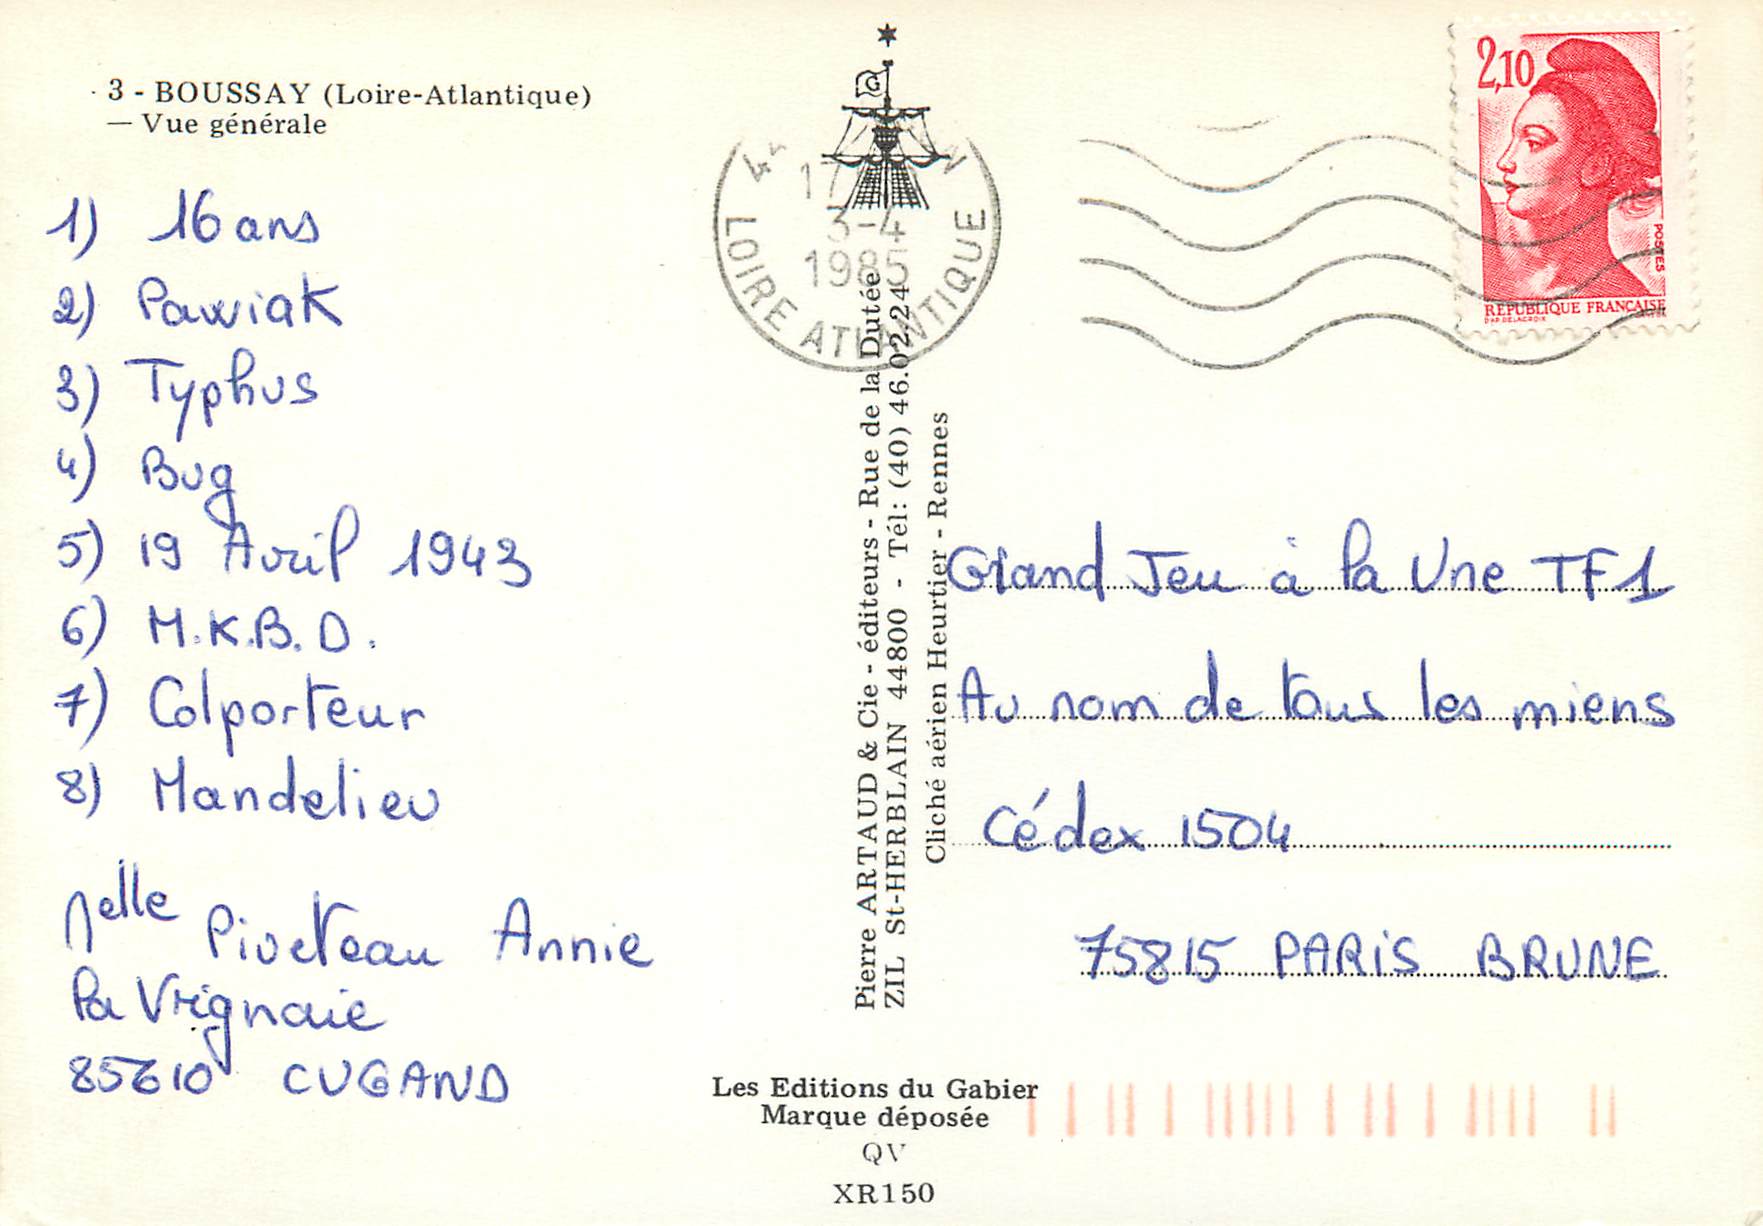 3 - BOUSSAY (Loire-Atlantique)
— Vue générale
1) 16 ans
2) Pawiak
3) Typhus
4) Bug
5) 19 Avril 1943
6) M.K.B.D.
7) Colporteur
8) Mandelieu
Melle Piveteau Annie
la Vrignaie
85610 CUGAND
G
17
3-4
1985
LOIRE ATLANTIQUE
Pierre ARTAUD & Cie - éditeurs - Rue de la Dutée
ZIL St-HERBLAIN 44800 - Tél: (40) 46.02.24
Cliché aérien Heurtier - Rennes
Les Editions du Gabier
Marque déposée
QV
XR150
2,10
POSTES
RÉPUBLIQUE FRANÇAISE
D'AP. DELACROIX
Grand Jeu à la Une TF1
Au nom de tous les miens
Cédex 1504
75815 PARIS BRUNE